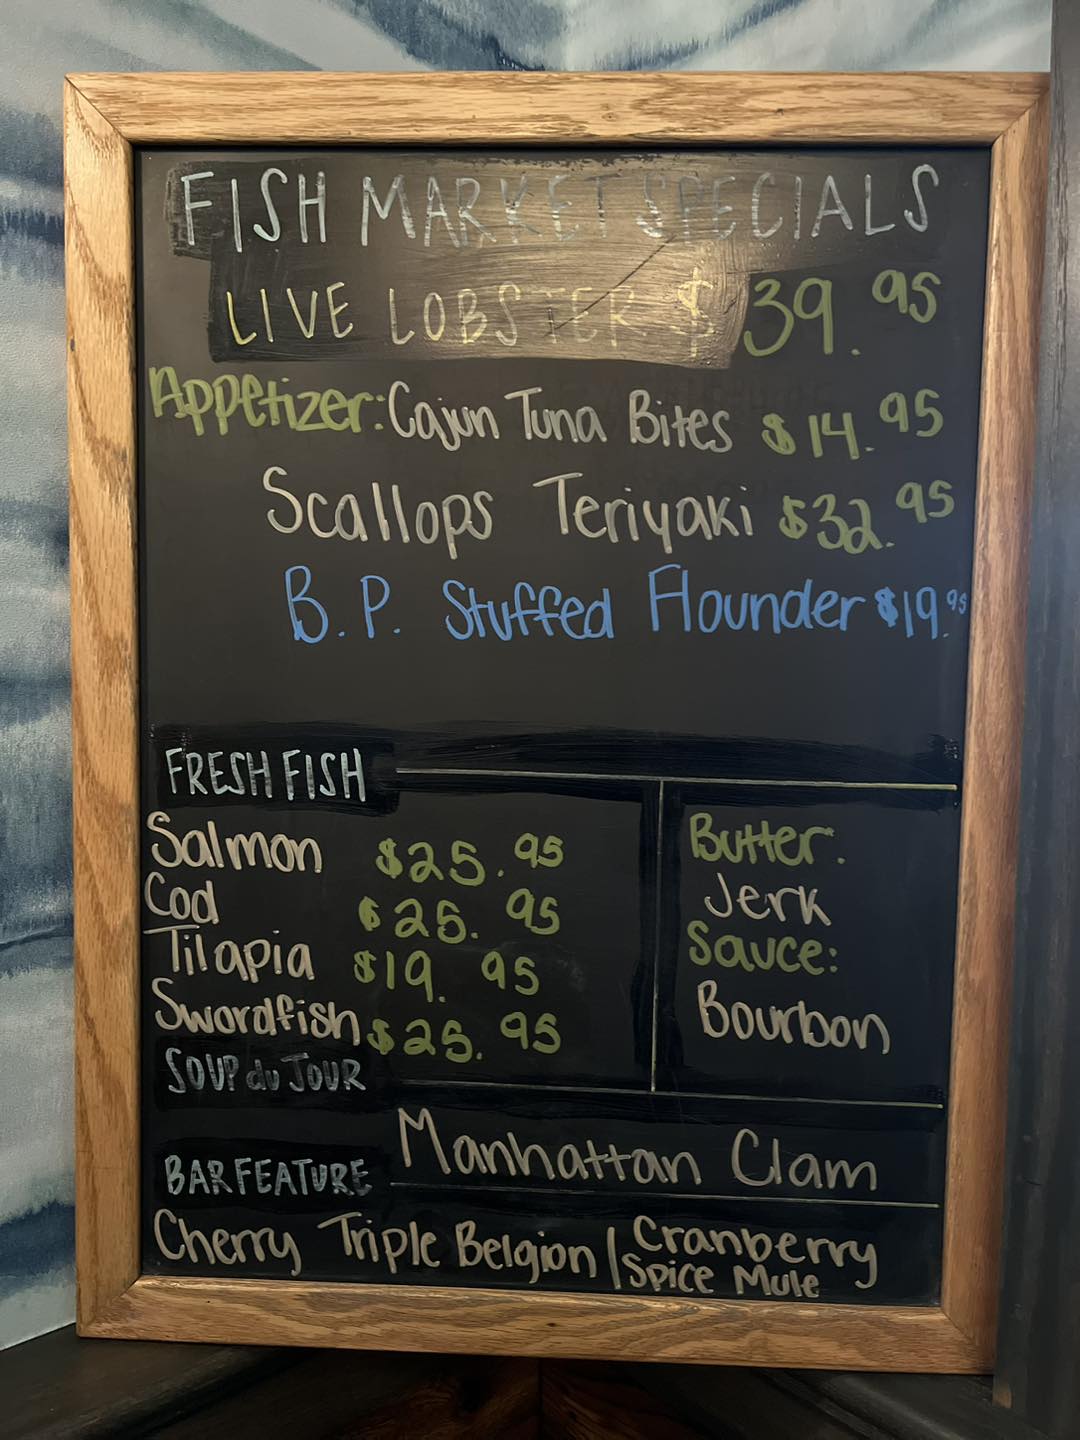 FISH MARKET SPECIALS
LIVE LOBSTER $39.95
Appetizer: Cajun Tuna Bites $14.95
Scallops Teriyaki $32.95
B.P. Stuffed Flounder $19.95
FRESH FISH
Salmon $25.95
Cod $25.95
Tilapia $19.95
Swordfish $25.95
Butter:
Jerk
Sauce:
Bourbon
SOUP du JOUR
Manhattan Clam
BAR FEATURE
Cherry Triple Belgion / Cranberry
Spice Mule